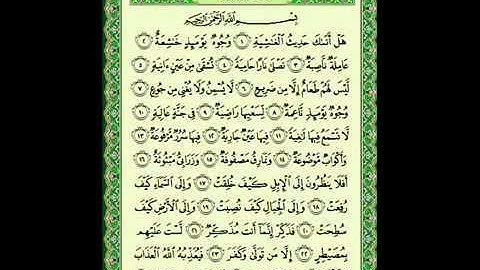 بِسْمِ اللَّهِ الرَّحْمَٰنِ الرَّحِيمِ
هَلْ أَتَىٰكَ حَدِيثُ ٱلْغَٰشِيَةِ ١ وُجُوهٌ يَوْمَئِذٍ خَٰشِعَةٌ ٢
عَامِلَةٌ نَّاصِبَةٌ ٣ تَصْلَىٰ نَارًا حَامِيَةً ٤ تُسْقَىٰ مِنْ عَيْنٍ ءَانِيَةٍ ٥
لَّيْسَ لَهُمْ طَعَامٌ إِلَّا مِن ضَرِيعٍ ٦ لَّا يُسْمِنُ وَلَا يُغْنِي مِن جُوعٍ ٧
وُجُوهٌ يَوْمَئِذٍ نَّاعِمَةٌ ٨ لِّسَعْيِهَا رَاضِيَةٌ ٩ فِي جَنَّةٍ عَالِيَةٍ ١٠
لَّا تَسْمَعُ فِيهَا لَٰغِيَةً ١١ فِيهَا عَيْنٌ جَارِيَةٌ ١٢ فِيهَا سُرُرٌ مَّرْفُوعَةٌ ١٣
وَأَكْوَابٌ مَّوْضُوعَةٌ ١٤ وَنَمَارِقُ مَصْفُوفَةٌ ١٥ وَزَرَابِيُّ مَبْثُوثَةٌ ١٦
أَفَلَا يَنظُرُونَ إِلَى ٱلْإِبِلِ كَيْفَ خُلِقَتْ ١٧ وَإِلَى ٱلسَّمَآءِ كَيْفَ
رُفِعَتْ ١٨ وَإِلَى ٱلْجِبَالِ كَيْفَ نُصِبَتْ ١٩ وَإِلَى ٱلْأَرْضِ كَيْفَ
سُطِحَتْ ٢٠ فَذَكِّرْ إِنَّمَآ أَنتَ مُذَكِّرٌ ٢١ لَّسْتَ عَلَيْهِم
بِمُصَيْطِرٍ ٢٢ إِلَّا مَن تَوَلَّىٰ وَكَفَرَ ٢٣ فَيُعَذِّبُهُ ٱللَّهُ ٱلْعَذَابَ